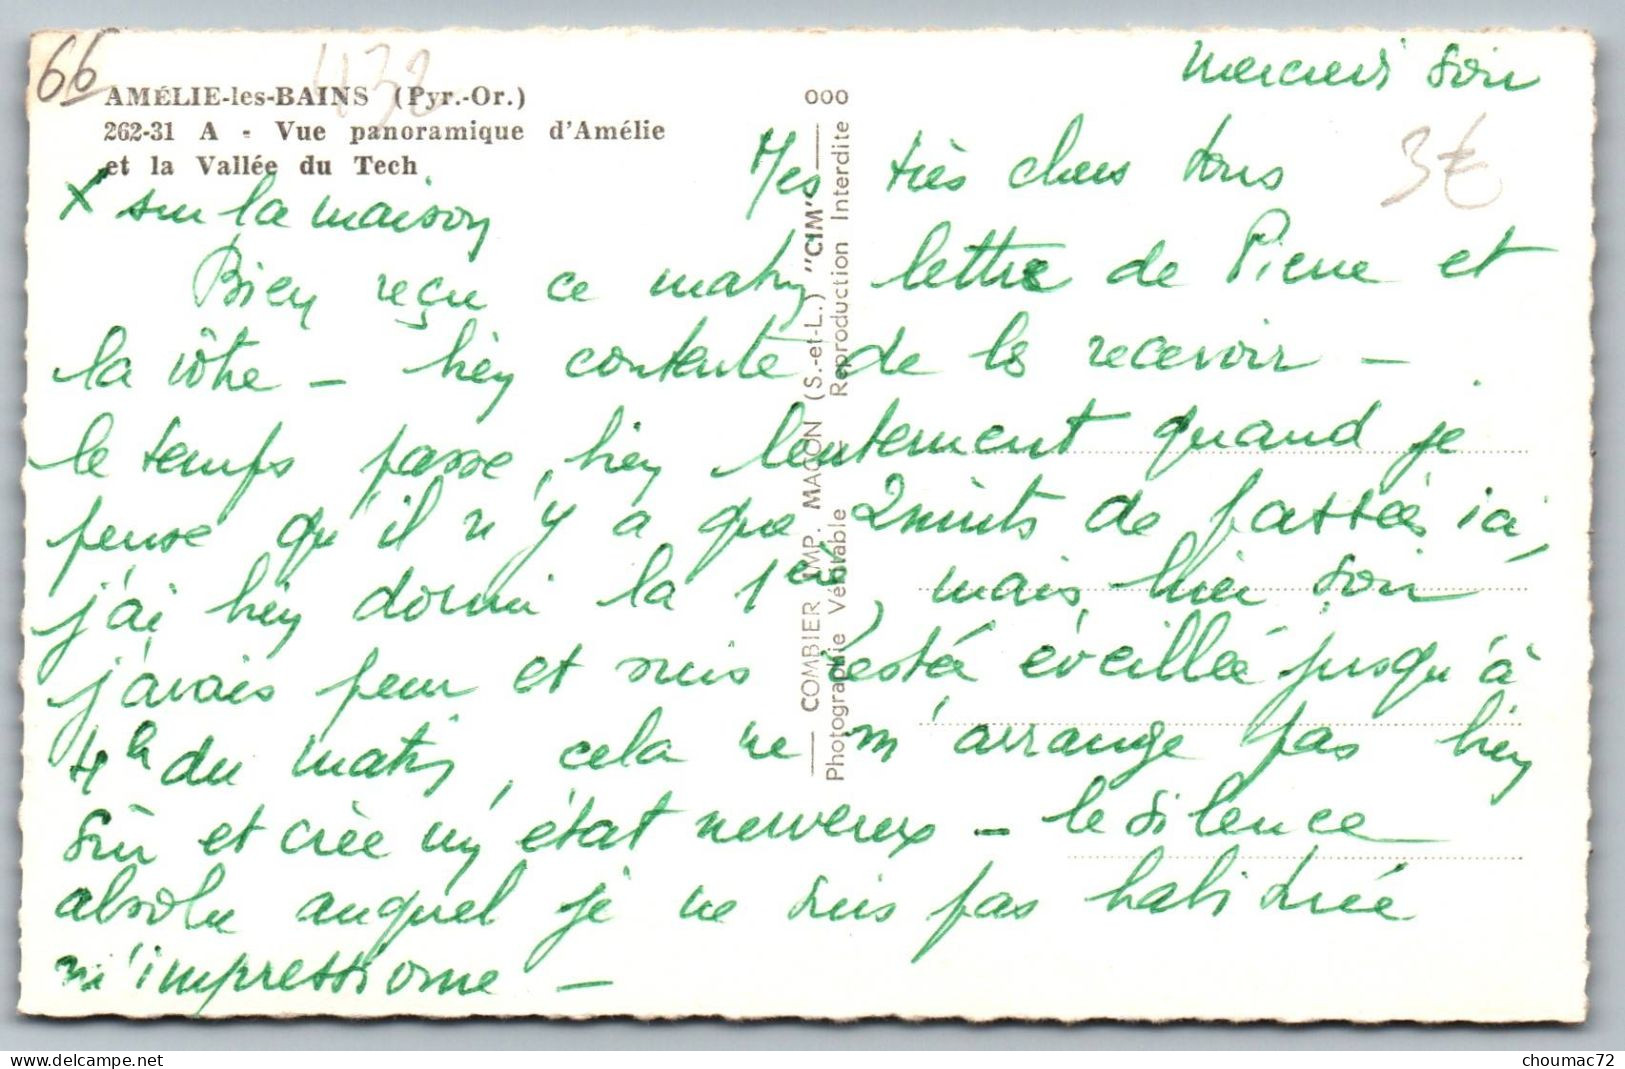 66
432
AMÉLIE-les-BAINS (Pyr.-Or.)
262-31 A - Vue panoramique d'Amélie
et la Vallée du Tech
X sur la maison
000
COMBIER IMP. MACON (S.-et-L.) "CIM"
Photographie Véritable - Reproduction Interdite
3€
Mercredi soir
Mes très chers tous
Bien reçu ce matin lettre de Pierre et
la vôtre - bien contente de les recevoir -
le temps passe, bien lentement quand je
pense qu'il n'y a que 2 nuits de passées ici,
j'ai bien dormi la 1ère, mais hier soir
j'avais peur et suis restée éveillée jusqu'à
4h du matin, cela ne m'arrange pas bien
sûr et crée un état nerveux - le silence
absolu auquel je ne suis pas habituée
m'impressionne -
delcampe.net
choumac72